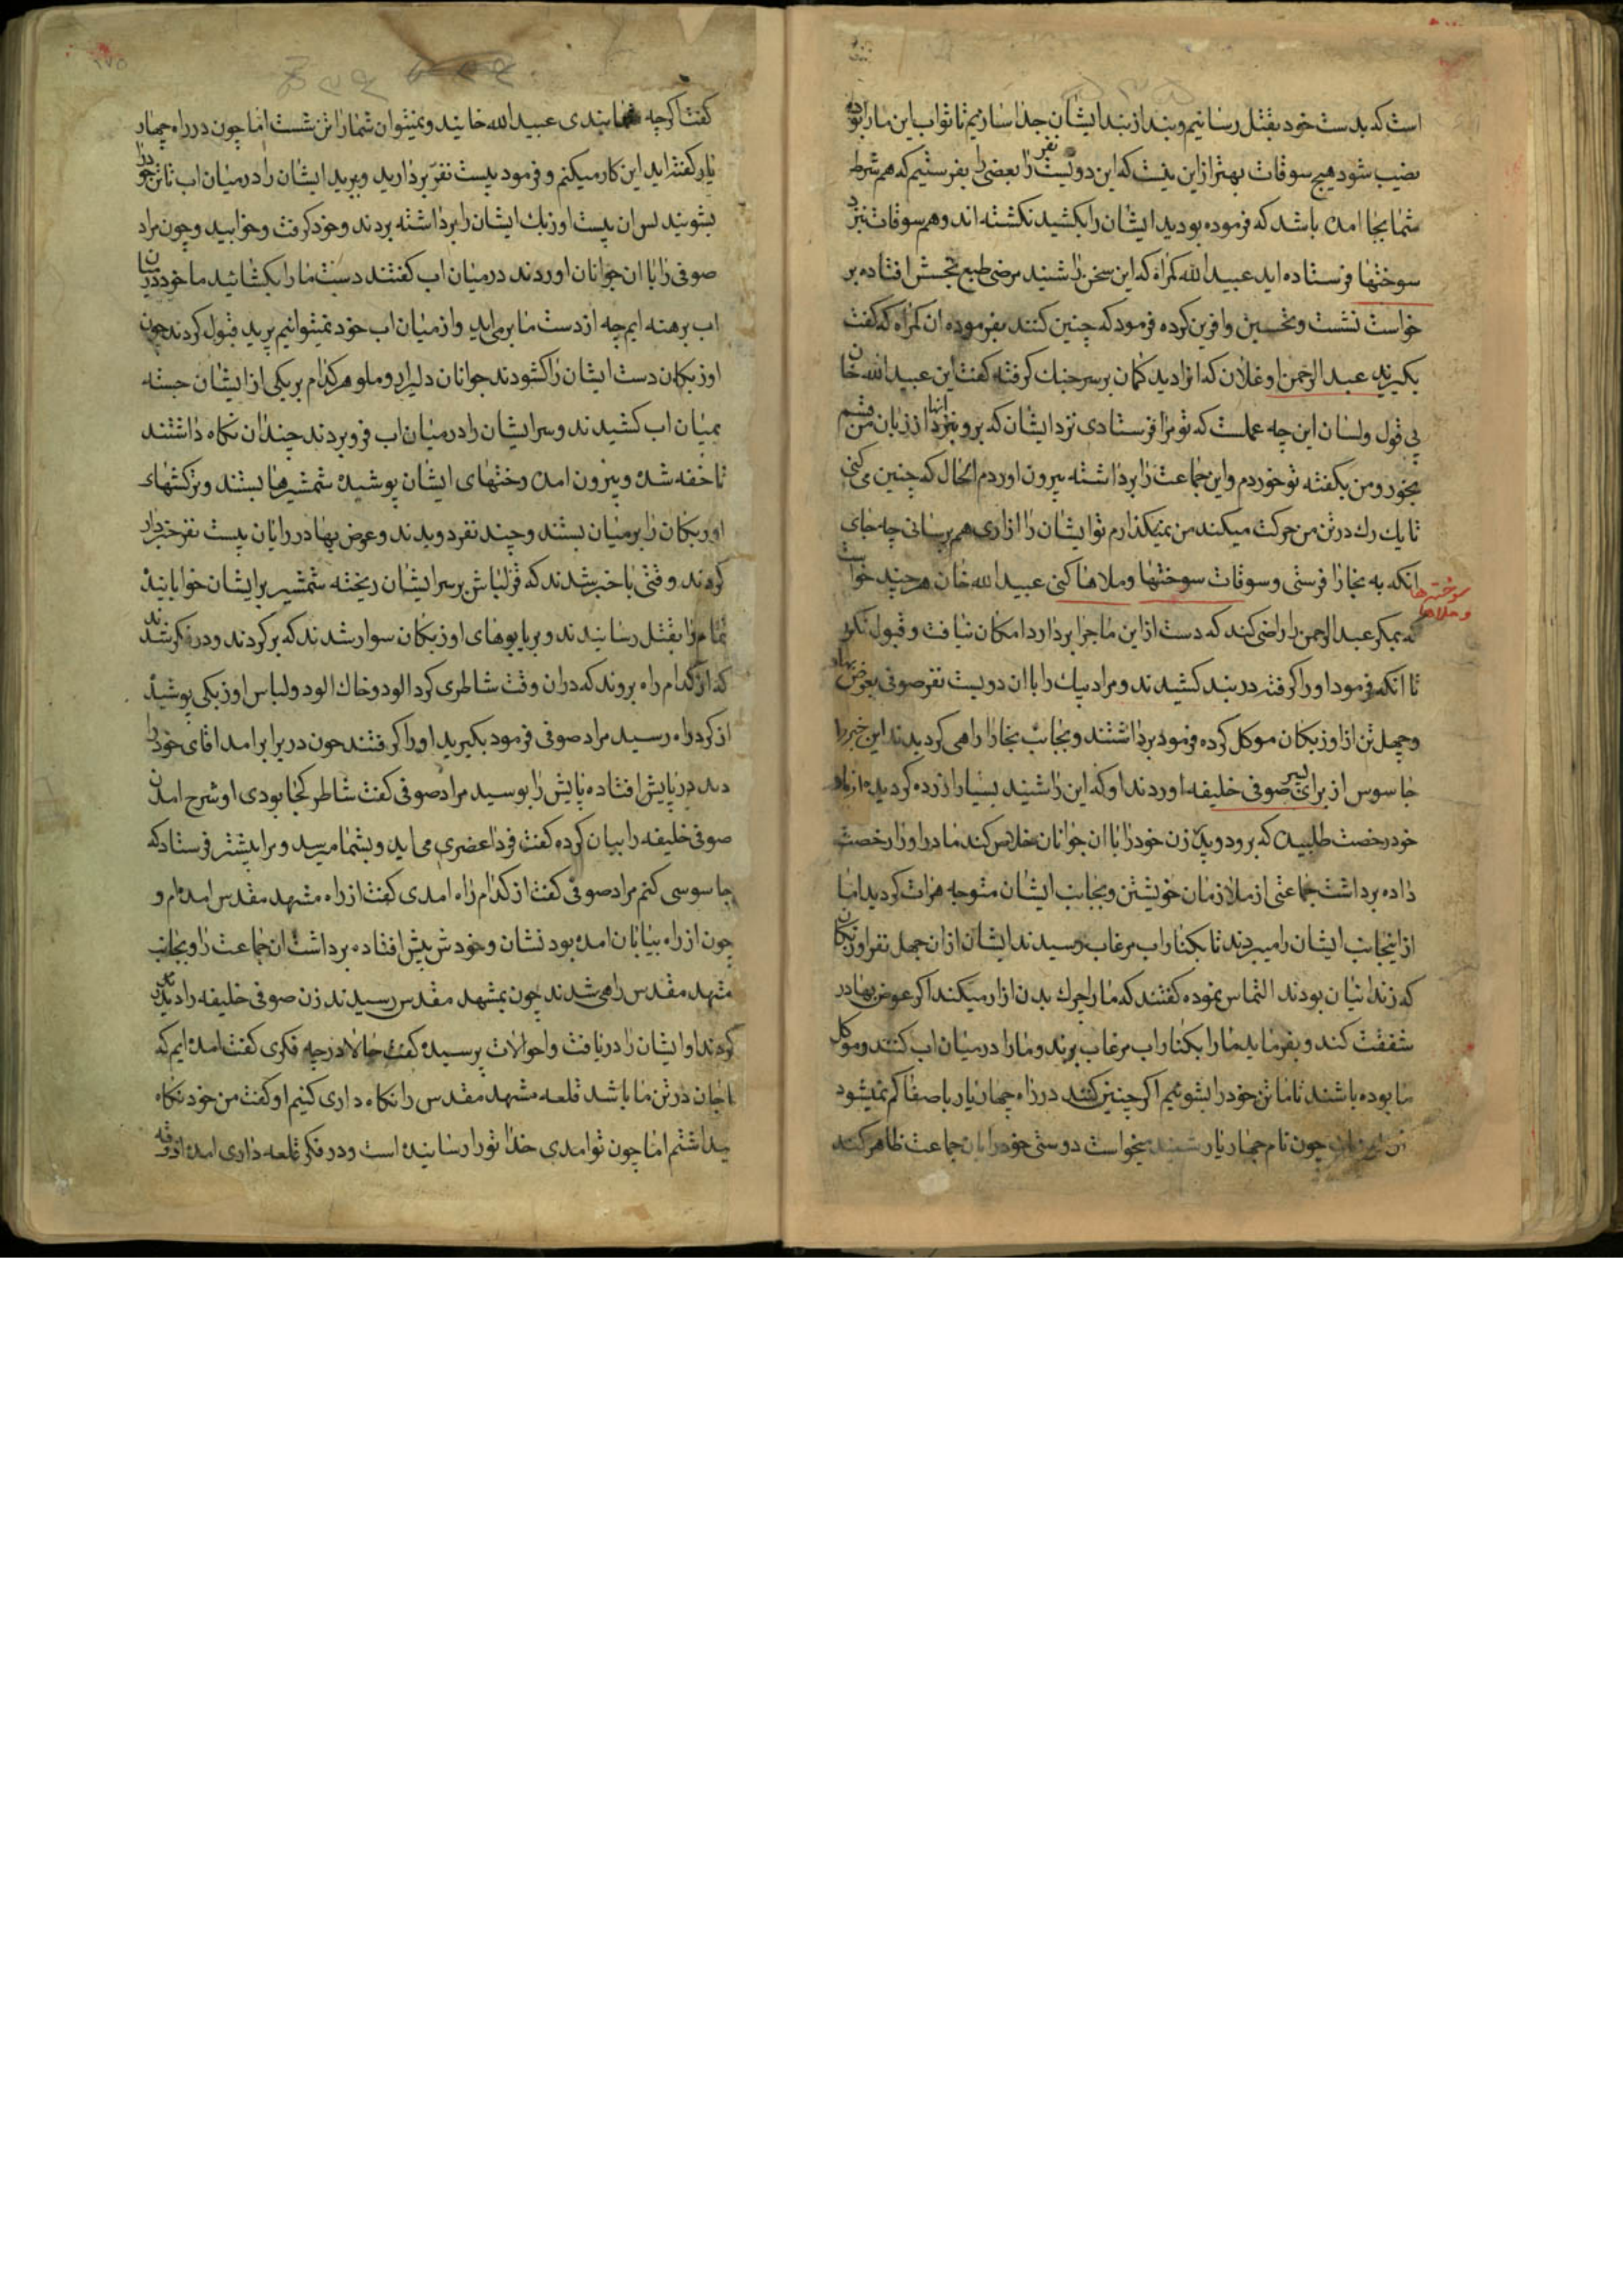 است که بدست خود بقتل رسانیم و بند از بند ایشان جدا سازیم تا ثواب این ما را بوده
نصیب شود هیچ سوقات بهتر از این نیست که این دویست نفر را بعضی را بفرستیم که هم شرط
شما بجا امده باشد که فرموده بودید ایشان را بکشید نکشته اند و هم سوقات نزد
سوختها فرستاده اید عبید الله کمراه که این سخن را شنید مرضی طبع نحسش افتاده بر
خواست نشست و تحسین و افرین کرده فرمود که چنین کنند بفرموده ان کمراه که کفت
بکیرند عبد الرحمن اوغلان که انرا دید کمان بر سر چنک کرفته کفت این عبید الله خان
بی قول ولسان این چه عملست که تو مرا فرستادی نزد ایشان که برو نزد انها از زبان من قسم
بخور و من بکفته تو خوردم و این جماعت را برداشته بیرون اوردم الحال که چنین می کنی
تا یک رک در تن من حرکت میکند من نمیکذارم تو ایشان را ازاری هم برسانی چه جای
انکه به بخارا فرستی و سوقات سوختها و ملاها کنی عبید الله خان هر چند خواست
سوختها و ملاها
که بمکر عبد الرحمن را راضی کند که دست از این ماجرا بردارد امکان نیافت و قبول نکرد
تا انکه فرمود او را کرفته در بند کشیدند و مراد بیک را با ان دویست نفر صوفی بعوض بهادر
و چهل تن از اوزبکان موکل کرده فرمود برداشتند و بجانب بخارا راهی کردیدند این خبر را
جاسوس از برای پسر صوفی خلیفه اوردند او که این را شنید بسیار ازرده کردید از مادر
خود رخصت طلبیده که برود و پدر زن خود را با ان جوانان خلاص کند مادر او را رخصت
داده برداشت جماعتی از ملازمان خویشتن و بجانب ایشان متوجه هرات کردید اما
از اینجانب ایشان را میبردند تا بکنار اب مرغاب رسیدند ایشان از ان چهل نفر اوزبکان
که زندانیان بودند التماس نموده کفتند که ما را چرک بدن ازار میکند اکر عوض بهادر
شفقت کند و بفرماید ما را بکنار اب مرغاب برند و ما را در میان اب کنند و موکل
ما بوده باشند تا ما تن خود را بشوئیم اکر چنین کنند در راه چهار یار باصفا کم نمیشود
چون نام چهار یار شنید میخواست دوستی خود را بان جماعت ظاهر کند
کفت اکرچه شما بندی عبید الله خانید و نمیتوان شما را تن شست اما چون در راه چهار
یار کفته اید این کار میکنم و فرمود بیست نفر بردارید و ببرید ایشان را در میان اب تا تن خود را
بشویند پس ان بیست اوزبک ایشان را برداشته بردند و خود کرفت و خوابید و چون مراد
صوفی را با ان جوانان اوردند در میان اب کفتند دست ما را بکشائید ما خود در میان
اب برهنه ایم چه از دست ما برمی اید و از میان اب خود نمیتوانیم پرید قبول کردند چون
اوزبکان دست ایشان را کشودند جوانان دلیر از و مملو هر کدام بر یکی از ایشان جسته
بمیان اب کشیدند و سر ایشان را در میان اب فرو بردند چندان نکاه داشتند
تا خفه شده و بیرون امده رختهای ایشان پوشیده شمشیرها بستند و ترکشهای
اوزبکان را بر میان بستند و چند نفر دویدند و عوض بهادر را با ان بیست نفر خبردار
کردند وقتی با خبر شدند که قزلباش بر سر ایشان ریخته شمشیر بر ایشان خوابانیدند
تمام را بقتل رسانیدند و بر یابوهای اوزبکان سوار شدند که بر کردند و در فکر شدند
که از کدام راه بروند که در ان وقت شاطری کرد الود و خاک الود و لباس اوزبکی پوشیده
از کرد راه رسید مراد صوفی فرمود بکیرید او را کرفتند چون در برابر امد اقای خود را
دید در پایش افتاده پایش را بوسید مراد صوفی کفت شاطر کجا بودی او شرح امدن
صوفی خلیفه را بیان کرده کفت فردا عصری می اید و بشما میرسد و مرا پیشتر فرستاد که
جاسوسی کنم مراد صوفی کفت از کدام راه امدی کفت از راه مشهد مقدس امده ام و
چون از راه بیابان امده بود نشان و خودش پیش افتاده برداشت ان جماعت را و بجانب
مشهد مقدس راهی شدند چون بمشهد مقدس رسیدند زن صوفی خلیفه را دیدن
کردند او ایشان را دریافت و احوالات پرسیده کفت حالا در چه فکری کفت امده ایم که
تا جان در تن ما باشد قلعه مشهد مقدس را نکاه داری کنیم او کفت من خود نکاه
میداشتم اما چون تو امدی خدا تو را رسانیده است و در فکر قلعه داری امده اذوقه